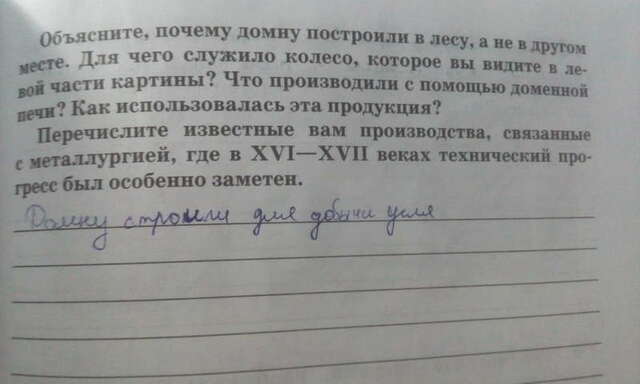 Объясните, почему домну построили в лесу, а не в другом
месте. Для чего служило колесо, которое вы видите в ле-
вой части картины? Что производили с помощью доменной
печи? Как использовалась эта продукция?
Перечислите известные вам производства, связанные
с металлургией, где в XVI—XVII веках технический про-
гресс был особенно заметен.
Домну строили для добычи угля